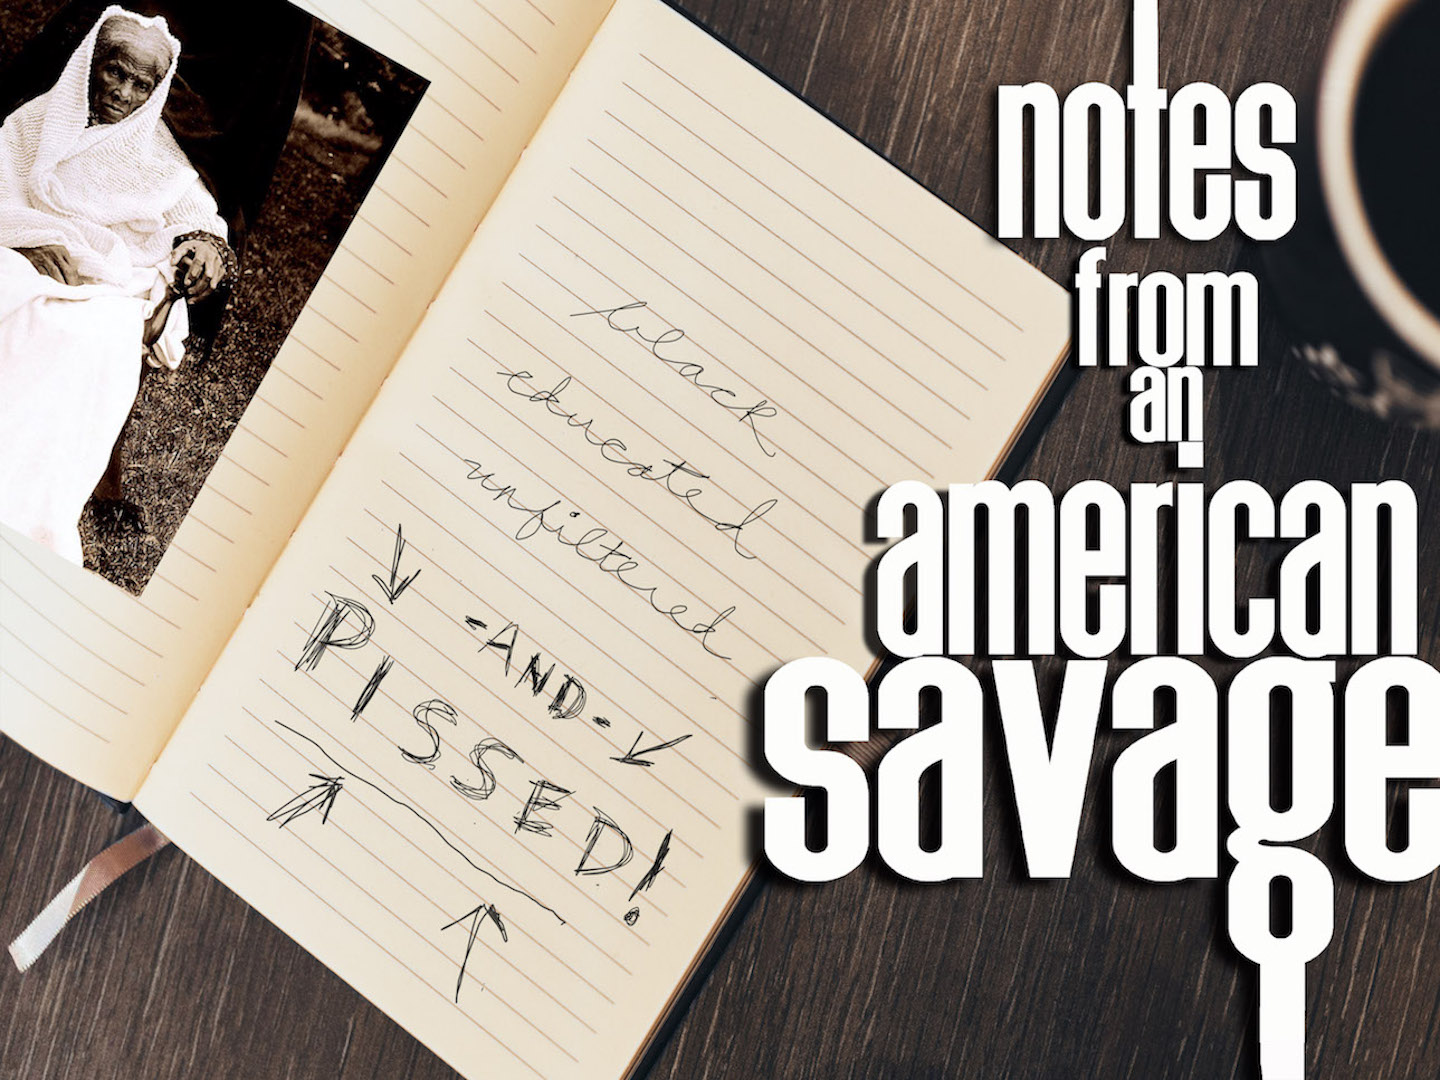 black
educated
unfiltered
-AND-
PISSED!
notes
from
an
american
savage